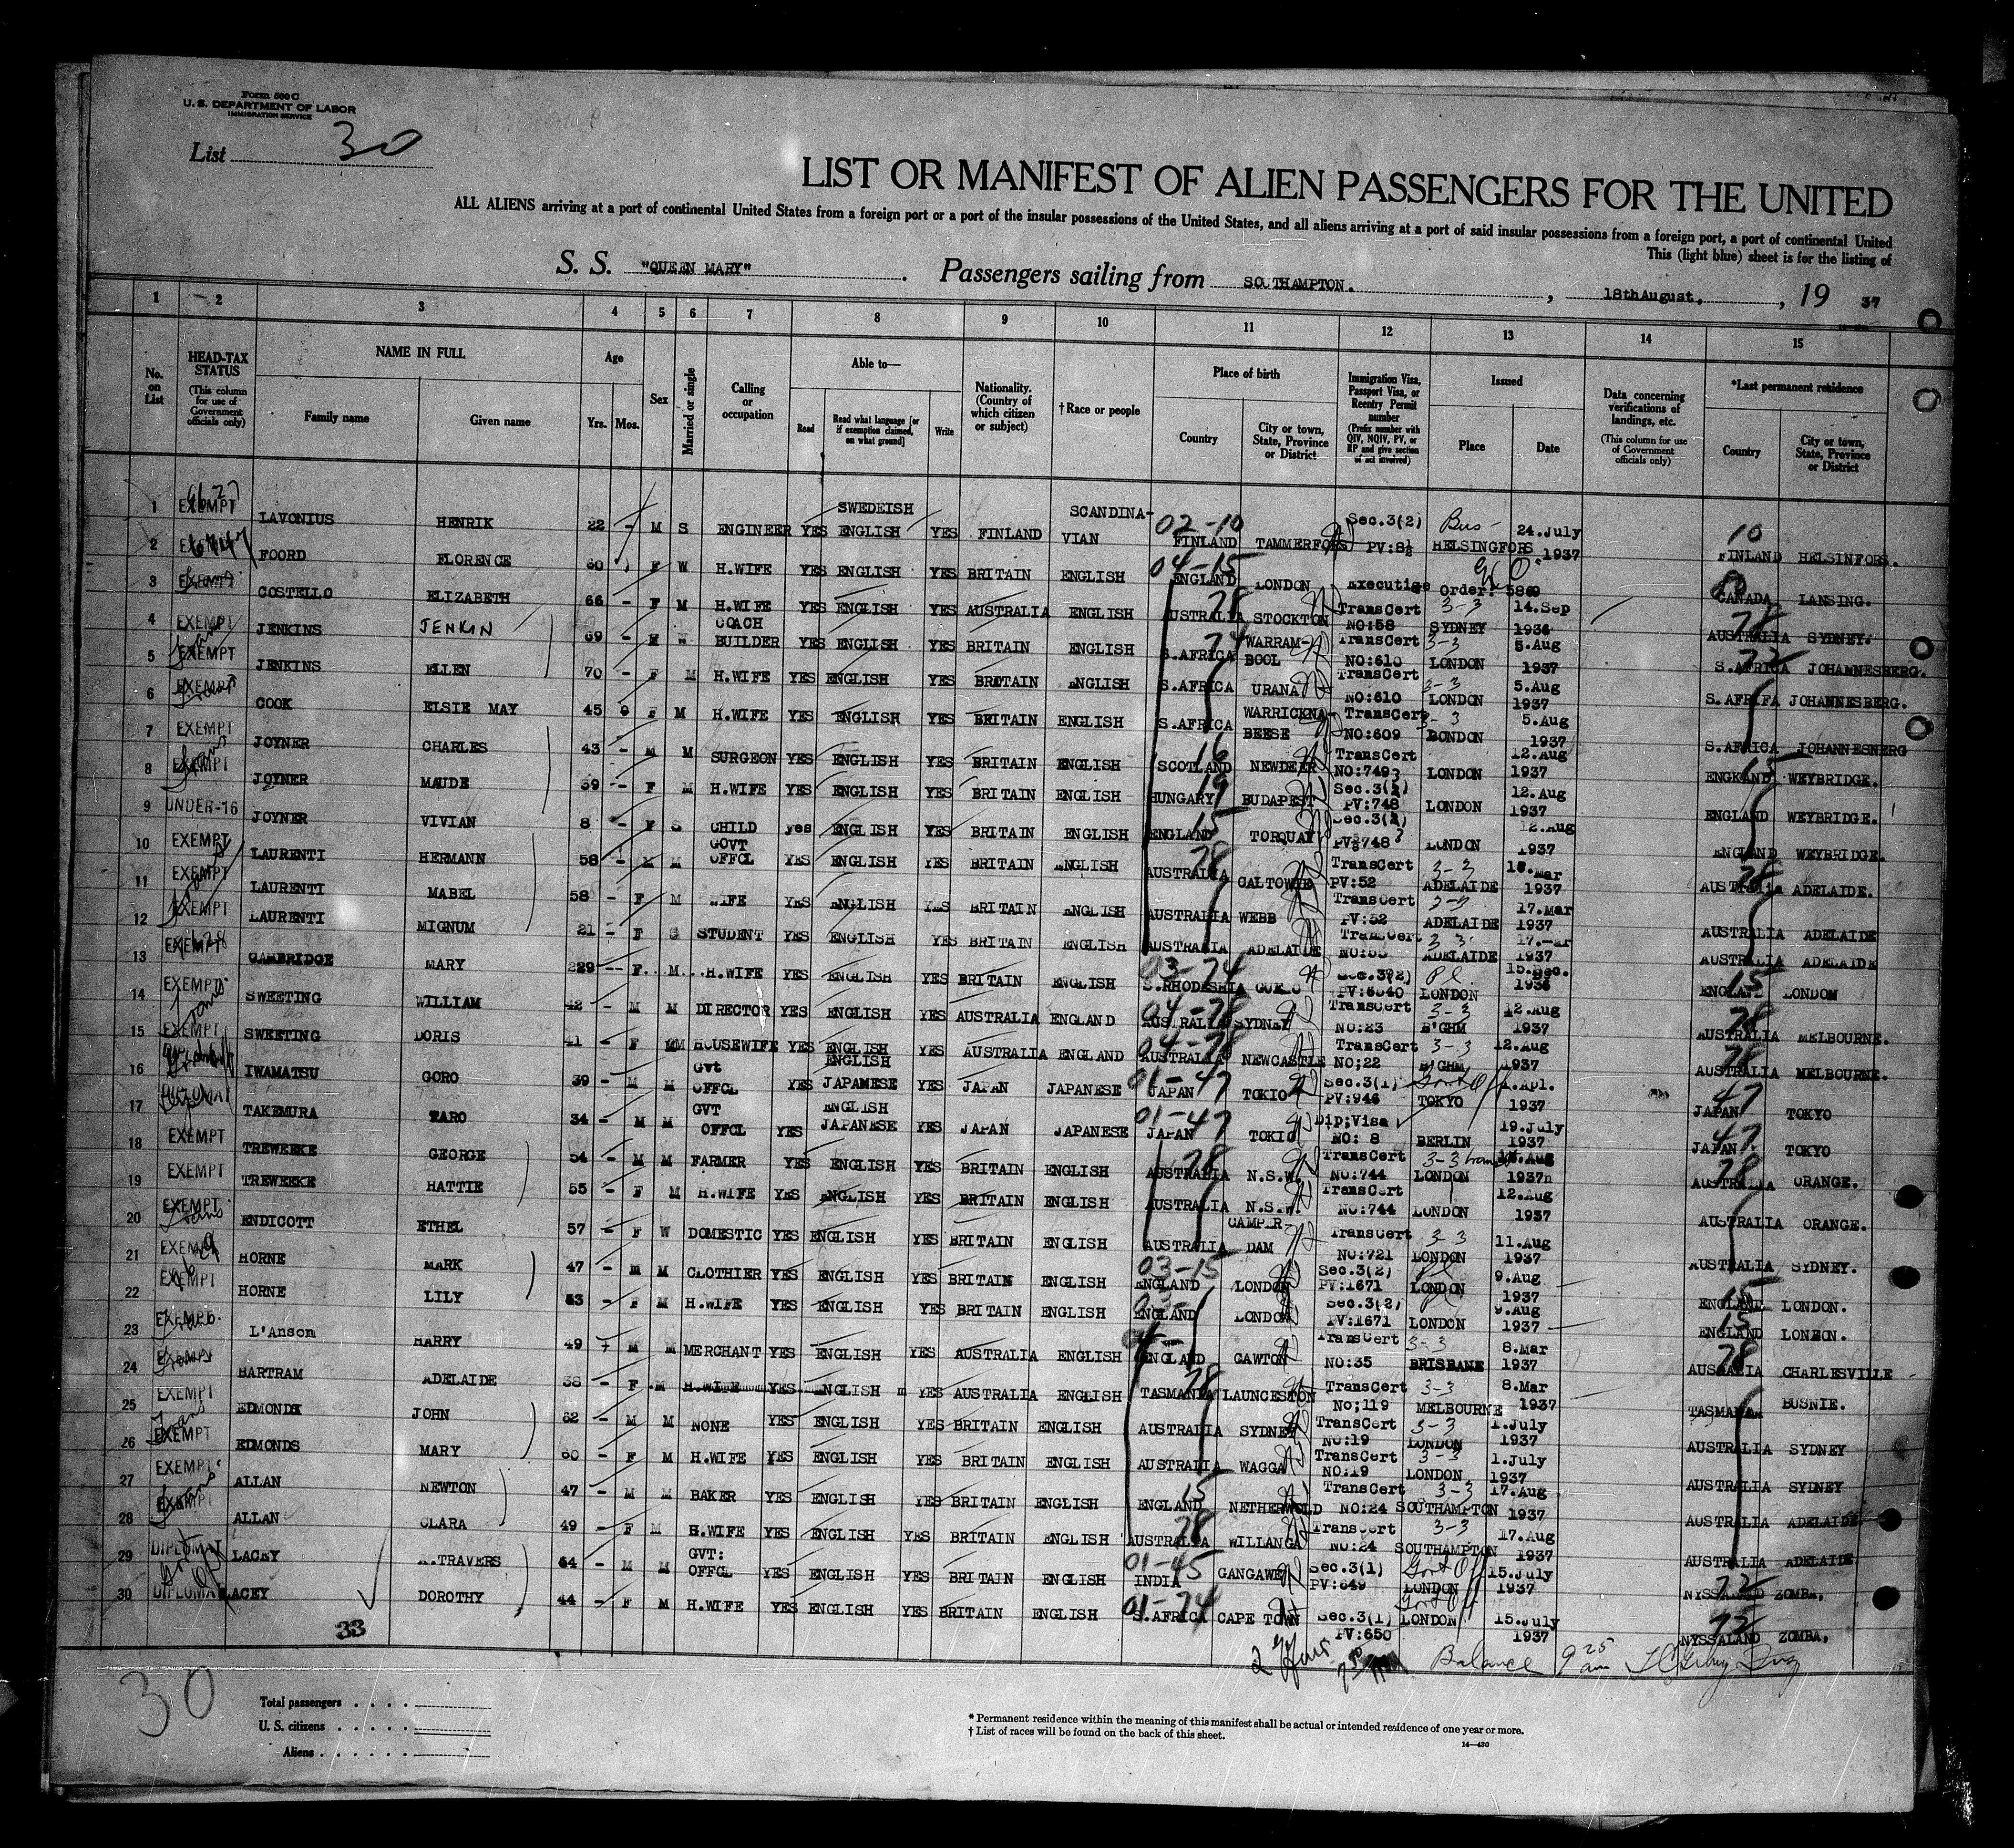 Form 500 C
U. S. DEPARTMENT OF LABOR
IMMIGRATION SERVICE
List 30
LIST OR MANIFEST OF ALIEN PASSENGERS FOR THE UNITED
ALL ALIENS arriving at a port of continental United States from a foreign port or a port of the insular possessions of the United States, and all aliens arriving at a port of said insular possessions from a foreign port, a port of continental United
This (light blue) sheet is for the listing of
S. S. "QUEEN MARY" . Passengers sailing from SOUTHAMPTON. , 18thAugust, , 19 37
1 2 3 4 5 6 7 8 9 10 11 12 13 14 15
No. on List
HEAD-TAX STATUS (This column for use of Government officials only)
NAME IN FULL Family name Given name
Age Yrs. Mos.
Sex
Married or single
Calling or occupation
Able to— Read Read what language [or if exemption claimed, on what ground] Write
Nationality. (Country of which citizen or subject)
†Race or people
Place of birth Country City or town, State, Province or District
Immigration Visa, Passport Visa, or Reentry Permit number (Prefix number with QIV, NQIV, PV, or RP and give section of act involved)
Issued Place Date
Data concerning verifications of landings, etc. (This column for use of Government officials only)
*Last permanent residence Country City or town, State, Province or District
1 EXEMPT LAVONIUS HENRIK 22 - M S ENGINEER YES SWEDEISH ENGLISH YES FINLAND SCANDINA-VIAN 02-10 FINLAND TAMMERFORS Sec.3(2) PV:8½ Bus- HELSINGFORS 24.July 1937 10 FINLAND HELSINFORS.
2 FOORD FLORENCE 60 F W H.WIFE YES ENGLISH YES BRITAIN ENGLISH 04-15 ENGLAND LONDON Executige Order: 5869 CANADA LANSING.
3 EXEMPT COSTELLO ELIZABETH 66 - F M H.WIFE YES ENGLISH YES AUSTRALIA ENGLISH 78 AUSTRALIA STOCKTON TransCert NO:58 3-3 SYDNEY 14.Sep 1936 78 AUSTRALIA SYDNEY.
4 EXEMPT JENKINS JENKIN 69 - M COACH BUILDER YES ENGLISH YES BRITAIN ENGLISH 74 S.AFRICA WARRAM-BOOL TransCert NO:610 3-3 LONDON 5.Aug 1937 S.AFRICA JOHANNESBERG.
5 EXEMPT JENKINS ELLEN 70 - F M H.WIFE YES ENGLISH YES BRITAIN ENGLISH S.AFRICA URANA TransCert NO:610 3-3 LONDON 5.Aug 1937 S.AFRIFA JOHANNESBERG.
6 EXEMPT COOK ELSIE MAY 45 F M H.WIFE YES ENGLISH YES BRITAIN ENGLISH S.AFRICA WARRICKNA-BEESE TransCert NO:609 3-3 BONDON 5.Aug 1937 S.AFRICA JOHANNESNERG
7 EXEMPT JOYNER CHARLES 43 - M M SURGEON YES ENGLISH YES BRITAIN ENGLISH 16 SCOTLAND NEWDEER TransCert NO:749 LONDON 12.Aug 1937 15 ENGKAND WEYBRIDGE.
8 EXEMPT JOYNER MAUDE 39 - F M H.WIFE YES ENGLISH YES BRITAIN ENGLISH 19 HUNGARY BUDAPEST Sec.3(2) PV:748 LONDON 12.Aug 1937 ENGLAND WEYBRIDGE.
9 UNDER-16 JOYNER VIVIAN 8 - F S CHILD yes ENGLISH YES BRITAIN ENGLISH 15 ENGLAND TORQUAY Sec.3(2) PV:748 LONDON 12.Aug 1937 ENGLAND WEYBRIDGE.
10 EXEMPT LAURENTI HERMANN 58 - M M GOVT OFFCL YES ENGLISH YES BRITAIN ENGLISH 78 AUSTRALIA CALTOWIE TransCert PV:52 3-3 ADELAIDE Mar 1937 78 AUSTRALIA ADELAIDE.
11 EXEMPT LAURENTI MABEL 58 - F M WIFE YES ENGLISH YES BRITAIN ENGLISH AUSTRALIA WEBB TransCert PV:52 3-3 ADELAIDE 17.Mar 1937 AUSTRALIA ADELAIDE
12 EXEMPT LAURENTI MIGNUM 21 - F S STUDENT YES ENGLISH YES BRITAIN ENGLISH AUSTRALIA ADELAIDE TransCert 3-3 ADELAIDE 17.Mar 1937 AUSTRALIA ADELAIDE
13 EXEMPT CAMBRIDGE MARY 229 -- F. M. H.WIFE YES ENGLISH YES BRITAIN ENGLISH 03-74 S.RHODESIA Sec.3(2) PV:5040 LONDON 15.Dec. 1936 15 ENGLAND LONDON
14 EXEMPT SWEETING WILLIAM 42 - M M DIRECTOR YES ENGLISH YES AUSTRALIA ENGLAND 04-78 AUSTRALIA SYDNEY TransCert NO:23 3-3 B'GHM 12.Aug 1937 78 AUSTRALIA MELBOURNE.
15 EXEMPT SWEETING DORIS 41 - F MM HOUSEWIFE YES ENGLISH YES AUSTRALIA ENGLAND 04-78 AUSTRALIA NEWCASTLE TransCert NO;22 3-3 B'GHM 12.Aug 1937 78 AUSTRALIA MELBOURNE.
16 IWAMATSU GORO 39 - M M Gvt OFFCL YES ENGLISH JAPANESE YES JAPAN JAPANESE 01-47 JAPAN TOKIO Sec.3(1) PV:946 Govt Off TOKYO Apl. 1937 47 JAPAN TOKYO
17 DIPLOMAT TAKEMURA TARO 34 - M M GVT OFFCL YES ENGLISH JAPANESE YES JAPAN JAPANESE 01-47 JAPAN TOKIO Dip;Visa NO: 8 BERLIN 19.July 1937 47 JAPAN TOKYO
18 EXEMPT TREWEEKE GEORGE 54 - M M FARMER YES ENGLISH YES BRITAIN ENGLISH 78 AUSTRALIA N.S.W. TransCert NO:744 3-3 LONDON Aug 1937n 78 AUSTRALIA ORANGE.
19 EXEMPT TREWEEKE HATTIE 55 - F M H.WIFE YES ENGLISH YES BRITAIN ENGLISH AUSTRALIA N.S.W. TransCert NO:744 LONDON 12.Aug 1937 AUSTRALIA ORANGE.
20 EXEMPT ENDICOTT ETHEL 57 - F W DOMESTIC YES ENGLISH YES BRITAIN ENGLISH AUSTRALIA CAMPER-DAM TransCert NO:721 3-3 LONDON 11.Aug 1937 AUSTRALIA SYDNEY.
21 EXEMPT HORNE MARK 47 - M M CLOTHIER YES ENGLISH YES BRITAIN ENGLISH 03-15 ENGLAND LONDON Sec.3(2) PV:1671 LONDON 9.Aug 1937 15 ENGLAND LONDON.
22 EXEMPT HORNE LILY F M H.WIFE YES ENGLISH YES BRITAIN ENGLISH ENGLAND LONDON Sec.3(2) PV:1671 LONDON 9.Aug 1937 15 ENGLAND LONBON.
23 EXEMPT L'Anson HARRY 49 M M MERCHANT YES ENGLISH YES AUSTRALIA ENGLISH 04- ENGLAND GAWTON TransCert NO:35 3-3 BRISBANE 8.Mar 1937 78 AUSTRALIA CHARLESVILLE
24 EXEMPT BARTRAM ADELAIDE 38 - F M H.WIFE YES ENGLISH YES AUSTRALIA ENGLISH 78 TASMANIA LAUNCESTON TransCert No;119 3-3 MELBOURNE 8.Mar 1937 TASMANIA BUSNIE.
25 EXEMPT EDMONDS JOHN 62 - M M NONE YES ENGLISH YES BRITAIN ENGLISH AUSTRALIA SYDNEY TransCert NO:19 3-3 LONDON 1.July 1937 AUSTRALIA SYDNEY
26 EXEMPT EDMONDS MARY 60 - F M H.WIFE YES ENGLISH YES BRITAIN ENGLISH AUSTRALIA WAGGA TransCert NO:19 3-3 LONDON 1.July 1937 AUSTRALIA SYDNEY
27 EXEMPT ALLAN NEWTON 47 - M M BAKER YES ENGLISH YES BRITAIN ENGLISH 15 ENGLAND NETHERWOLD TransCert NO:24 3-3 SOUTHAMPTON 17.Aug 1937 AUSTRALIA ADELAIDE
28 EXEMPT ALLAN CLARA 49 - F M H.WIFE YES ENGLISH YES BRITAIN ENGLISH 78 AUSTRALIA WILLANGA TransCert NO:24 3-3 SOUTHAMPTON 17.Aug 1937 AUSTRALIA ADELAIDE
29 DIPLOMAT LACEY TRAVERS 54 - M M GVT: OFFCL YES ENGLISH YES BRITAIN ENGLISH 01-45 INDIA GANGAWE Sec.3(1) PV:649 Govt Off LONDON 15.July 1937 NYSSALAND ZOMBA,
30 DIPLOMAT LACEY DOROTHY 44 - F M H.WIFE YES ENGLISH YES BRITAIN ENGLISH 01-74 S.AFRICA CAPE TOWN Sec.3(1) PV:650 Govt Off LONDON 15.July 1937 NYSSALAND ZOMBA,
33
Balance 9 25 am
30
Total passengers
U. S. citizens
Aliens
* Permanent residence within the meaning of this manifest shall be actual or intended residence of one year or more.
† List of races will be found on the back of this sheet.
14—430